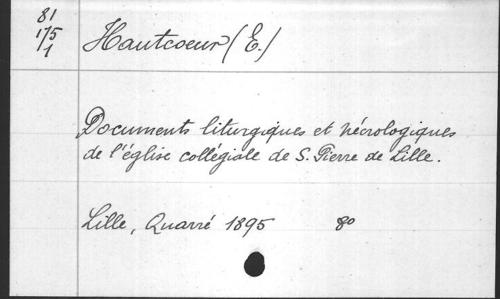 81
175
1
Hautcoeur (E.)
Documents liturgiques et nécrologiques
de l'église collégiale de S. Pierre de Lille.
Lille, Quarré 1895 8º